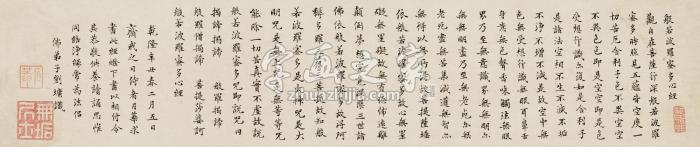 般若波羅蜜多心經
觀自在菩薩行深般若波羅
蜜多時照見五蘊皆空度一
切苦厄舍利子色不異空空
不異色色即是空空即是色
受想行識亦復如是舍利子
是諸法空相不生不滅不垢
不淨不增不減是故空中無
色無受想行識無眼耳鼻舌
身意無色聲香味觸法無眼
界乃至無意識界無無明亦
無無明盡乃至無老死亦無
老死盡無苦集滅道無智亦
無得以無所得故菩提薩埵
依般若波羅蜜多故心無罣
礙無罣礙故無有恐怖遠離
顛倒夢想究竟涅槃三世諸
佛依般若波羅蜜多故得阿
耨多羅三藐三菩提故知般
若波羅蜜多是大神咒是大
明咒是無上咒是無等等咒
能除一切苦真實不虛故說
般若波羅蜜多咒即說咒曰
揭諦揭諦 般羅揭諦
般羅僧揭諦 菩提莎婆訶
般若波羅蜜多心經
乾隆辛丑春二月五日
齋戒之日侍者月華求
書此經燈下書以相付令
其恭敬供養讀誦思惟
同結淨緣常為法侶
佛弟子劉墉識